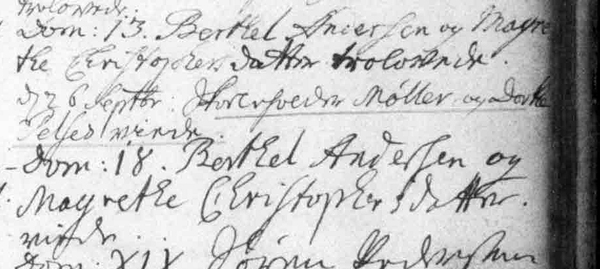 trolovede.
Dom: 13. Berthel Andersen og Magre
the Christophers datter trolovede.
d 26 Septbr. Møller og Dorthe
viede.
Dom: 18. Berthel Andersen og
Magrethe Christophers datter.
viede.
Dom: XIX Søren Pedersen